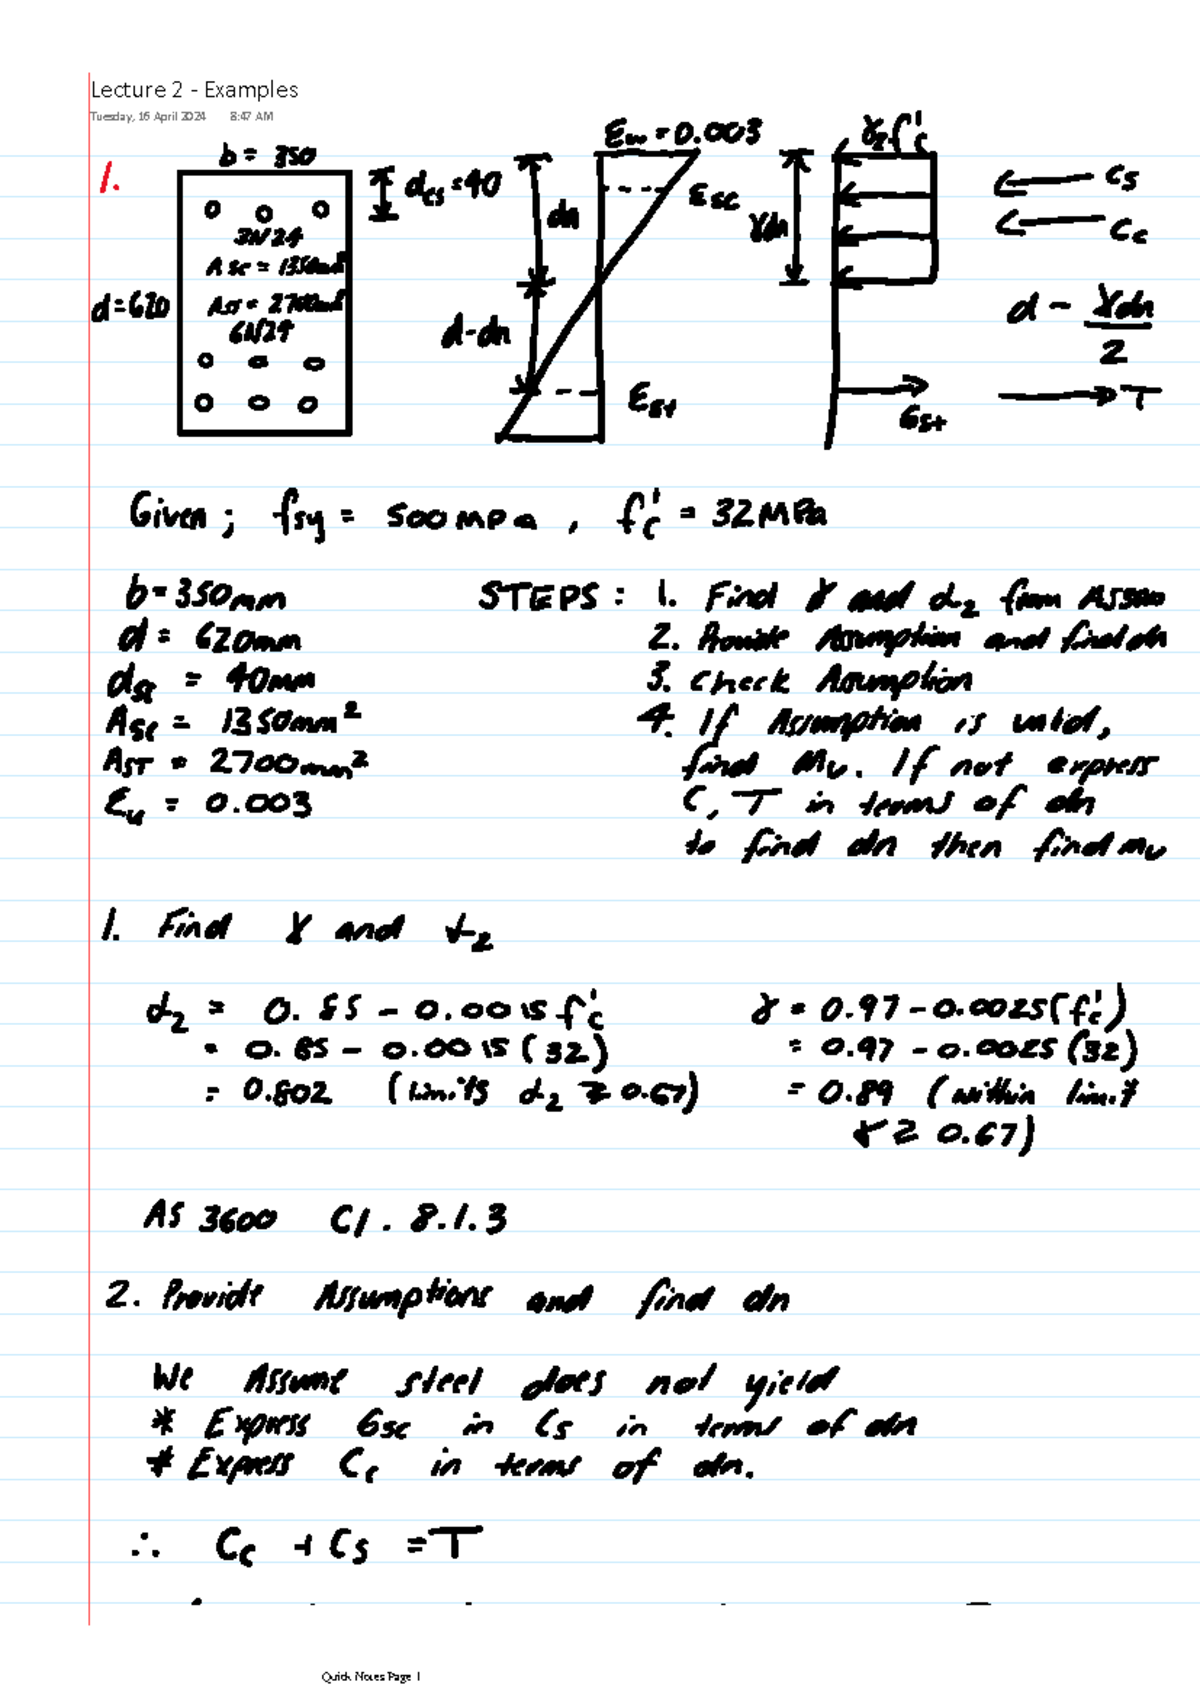 Lecture 2 - Examples
Tuesday, 16 April 2024 8:47 AM
1.
b = 350
dcs = 40
3N24
Asc = 1350mm²
d = 620
Ast = 2700mm²
6N24
εu = 0.003
εsc
dn
d-dn
εst
α2f'c
γdn
σst
Cs
Cc
d - γdn/2
T
Given ; fsy = 500MPa , f'c = 32MPa
b = 350mm
d = 620mm
dsc = 40mm
Asc = 1350mm²
AST = 2700mm²
εu = 0.003
STEPS : 1. Find γ and α2 from AS3600
2. Provide Assumption and find dn
3. Check Assumption
4. If Assumption is valid,
find Mu. If not express
C, T in terms of dn
to find dn then find Mu
1. Find γ and α2
α2 = 0.85 - 0.0015 f'c
= 0.85 - 0.0015 (32)
= 0.802 (limits α2 ≥ 0.67)
γ = 0.97 - 0.0025(f'c)
= 0.97 - 0.0025 (32)
= 0.89 (within limit
γ ≥ 0.67)
AS 3600 Cl. 8.1.3
2. Provide Assumptions and find dn
We Assume steel does not yield
* Express σsc in Cs in terms of dn
* Express Cc in terms of dn.
∴ Cc + Cs = T
Quick Notes Page 1